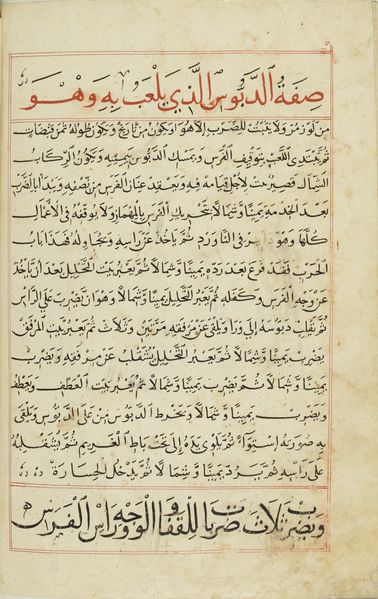 صفة الدبوس الذي يلعب به وهو
من لوز مر ولا يثبت للضرب الا هو او يكون من نارنج ويكون طوله ثمن قبضات
ثم يبتدي اللعب بتوقيف الفرس ويمسك الدبوس بيمينه ويكون الركاب
الشمال قصير تحت لاجل قيامه فيه ويعقد عنان الفرس من نصفه ويبدا بالضرب
بعد الخدمة يمينا وشمالا بتحريك الفرس بالمهماز ولا يوقفه في الاعمال
كلها وهو في الناورد ثم ياخذ عن راسه ويحاوله فهذا باب
الحرب فقد فرغ بعد رده يمينا وشمالا ثم يعبر بيت التخليل بعد ان ياخذ
عن وجه الفرس وكفله ثم يعبر التخليل يمينا وشمالا وهو ان يضرب على الراس
ثم يقلب دبوسه الى ورا ويلقي عن مرفقه مرتين وثلاث ثم يعبر بيت المرفق
يضرب يمينا وشمالا ثم يعبر التخليل بتقلب عن مرفقه ويضرب
يمينا وشمالا ثم يضرب يمينا وشمالا ثم يعبر بيت العطف ويعطف
ويضرب يمينا وشمالا ويخرط الدبوس من على الدبوس ويلقى
به ضربته استواء ثم يلوي يده الى تحت باط الغريم ثم يقلبه
على راسه ثم يرد يمينا وشمالا ثم يدخل الجسارة
ويضرب ثلاث ضربات للقفا والوجه وراس الفرس